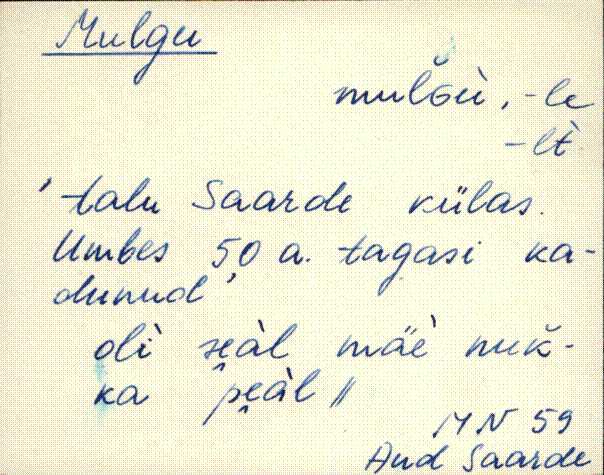 Mulgu
mulG̀ù, -le
-lt̀
' talu Saarde külas.
Umbes 50 a. tagasi ka-
dunud'
olì se̯àl mäè nuk̆-
ka pe̯àl //
MN 59
And Saarde